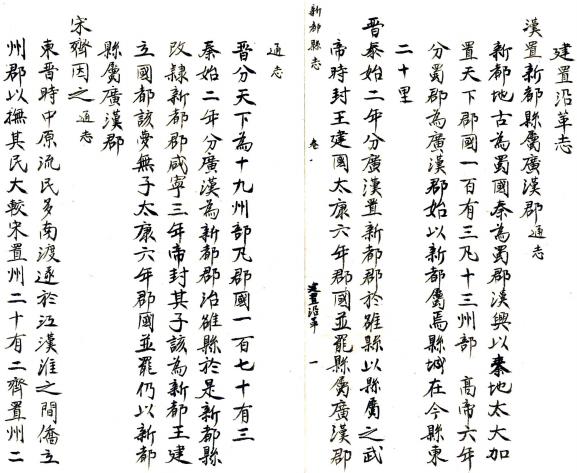 建置沿革志
漢置新都縣屬廣漢郡通志
新都地古為蜀國秦為蜀郡漢興以秦地太大加
置天下郡國一百有三凡十三州部 高帝六年
分蜀郡為廣漢郡始以新都屬焉縣城在今縣東
二十里
晉泰始二年分廣漢置新都郡於雒縣以縣屬之武
帝時封王建國太康六年郡國並罷縣屬廣漢郡
新都縣志 卷一 建置沿革 一
通志
晉分天下為十九州部凡郡國一百七十有三
泰始二年分廣漢為新都郡治雒縣於是新都縣
改隸新都郡咸寧三年帝封其子該為新都王建
立國都該薨無子太康六年郡國並罷仍以新都
縣屬廣漢郡
宋齊因之通志
東晉時中原流民多南渡遂於江漢淮之間僑立
州郡以撫其民大較宋置州二十有二齊置州二